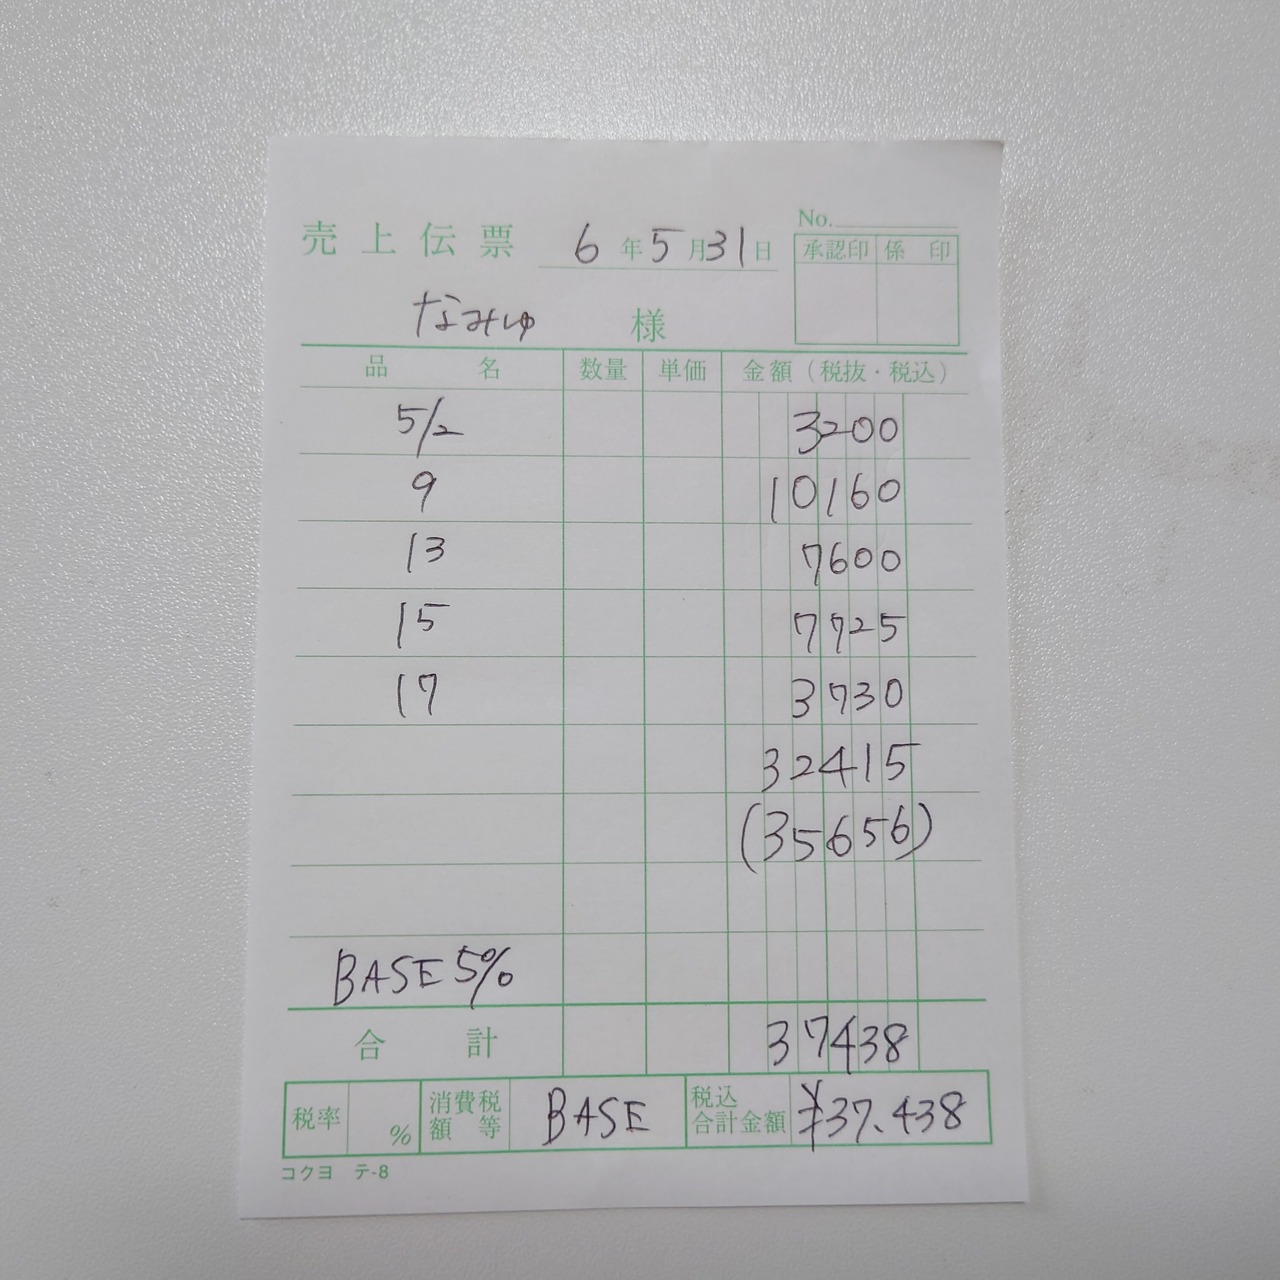 No.
売上伝票 6年5月31日
承認印 係印
なみゅ 様
品名 数量 単価 金額(税抜・税込)
5/2 3200
9 10160
13 7600
15 7725
17 3730
32415
(35656)
BASE 5%
合計 37438
税率 % 消費税額等 BASE 税込合計金額 ¥37.438
コクヨ テ-8